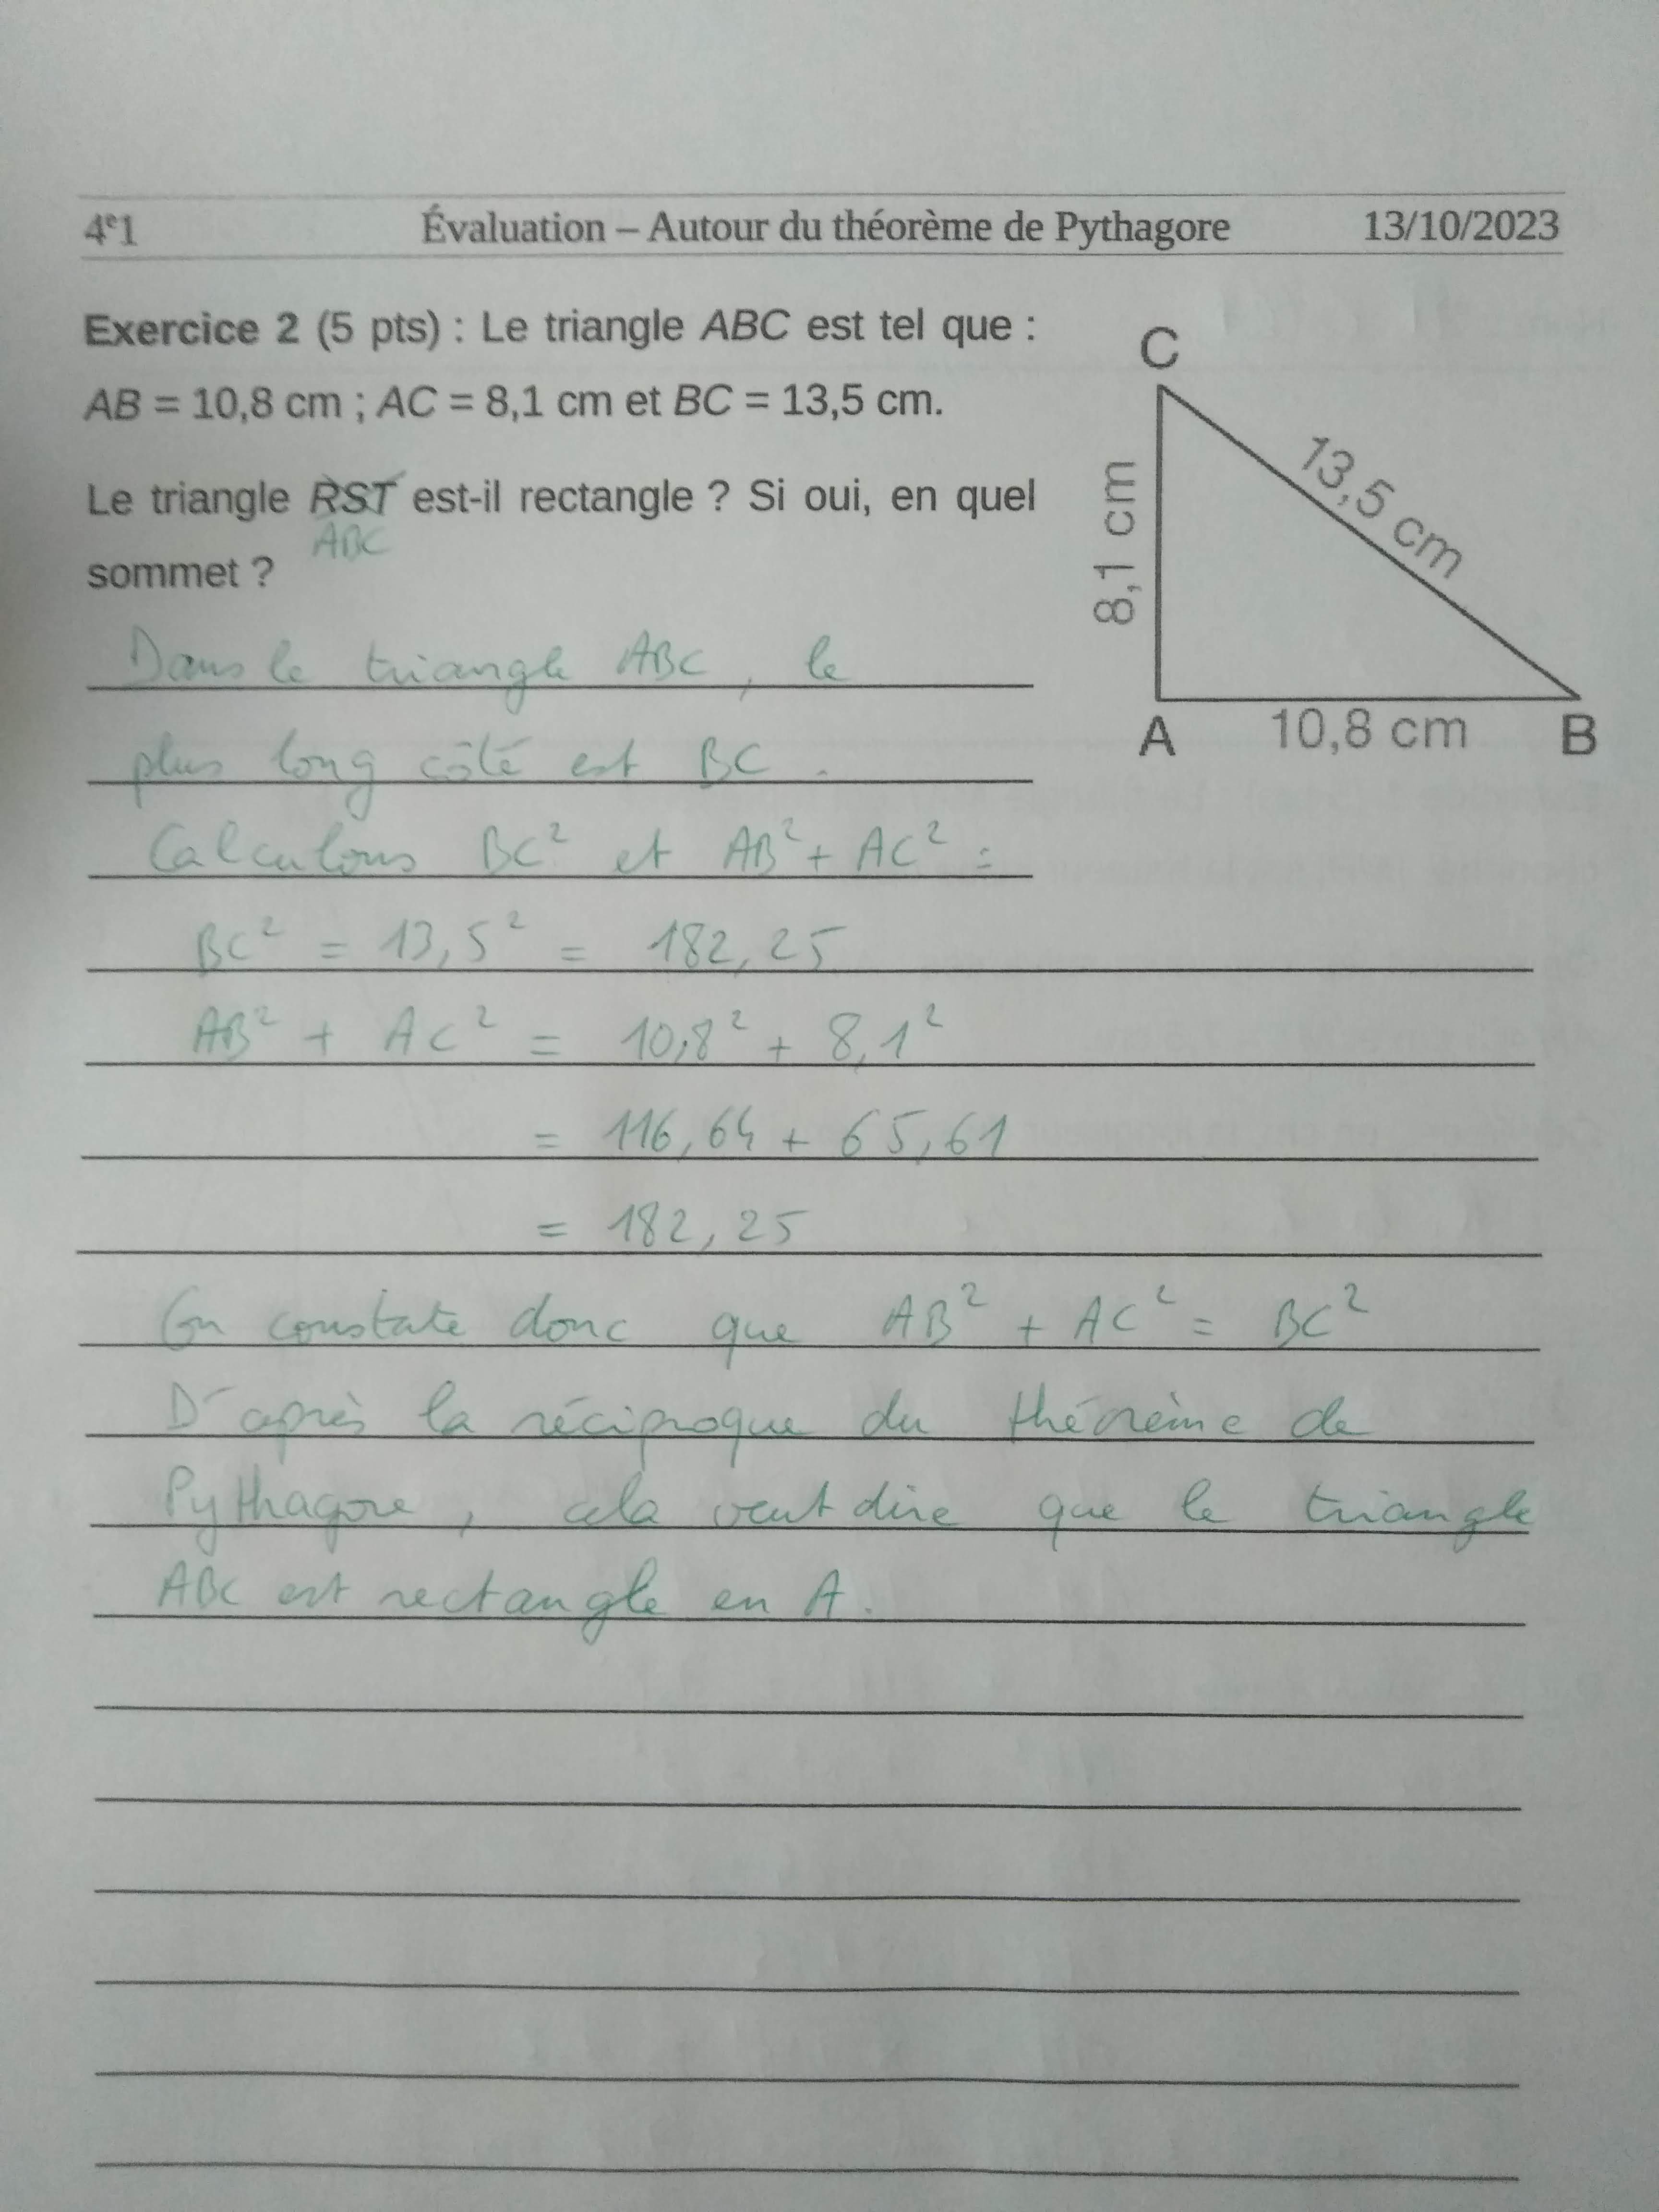 4e1 Évaluation – Autour du théorème de Pythagore 13/10/2023
Exercice 2 (5 pts) : Le triangle ABC est tel que :
AB = 10,8 cm ; AC = 8,1 cm et BC = 13,5 cm.
Le triangle RST est-il rectangle ? Si oui, en quel
ABC
sommet ?
C
8,1 cm
13,5 cm
A 10,8 cm B
Dans le triangle ABC, le
plus long côté est BC.
Calculons BC² et AB² + AC² :
BC² = 13,5² = 182,25
AB² + AC² = 10,8² + 8,1²
= 116,64 + 65,61
= 182,25
On constate donc que AB² + AC² = BC²
D'après la réciproque du théorème de
Pythagore, cela veut dire que le triangle
ABC est rectangle en A.